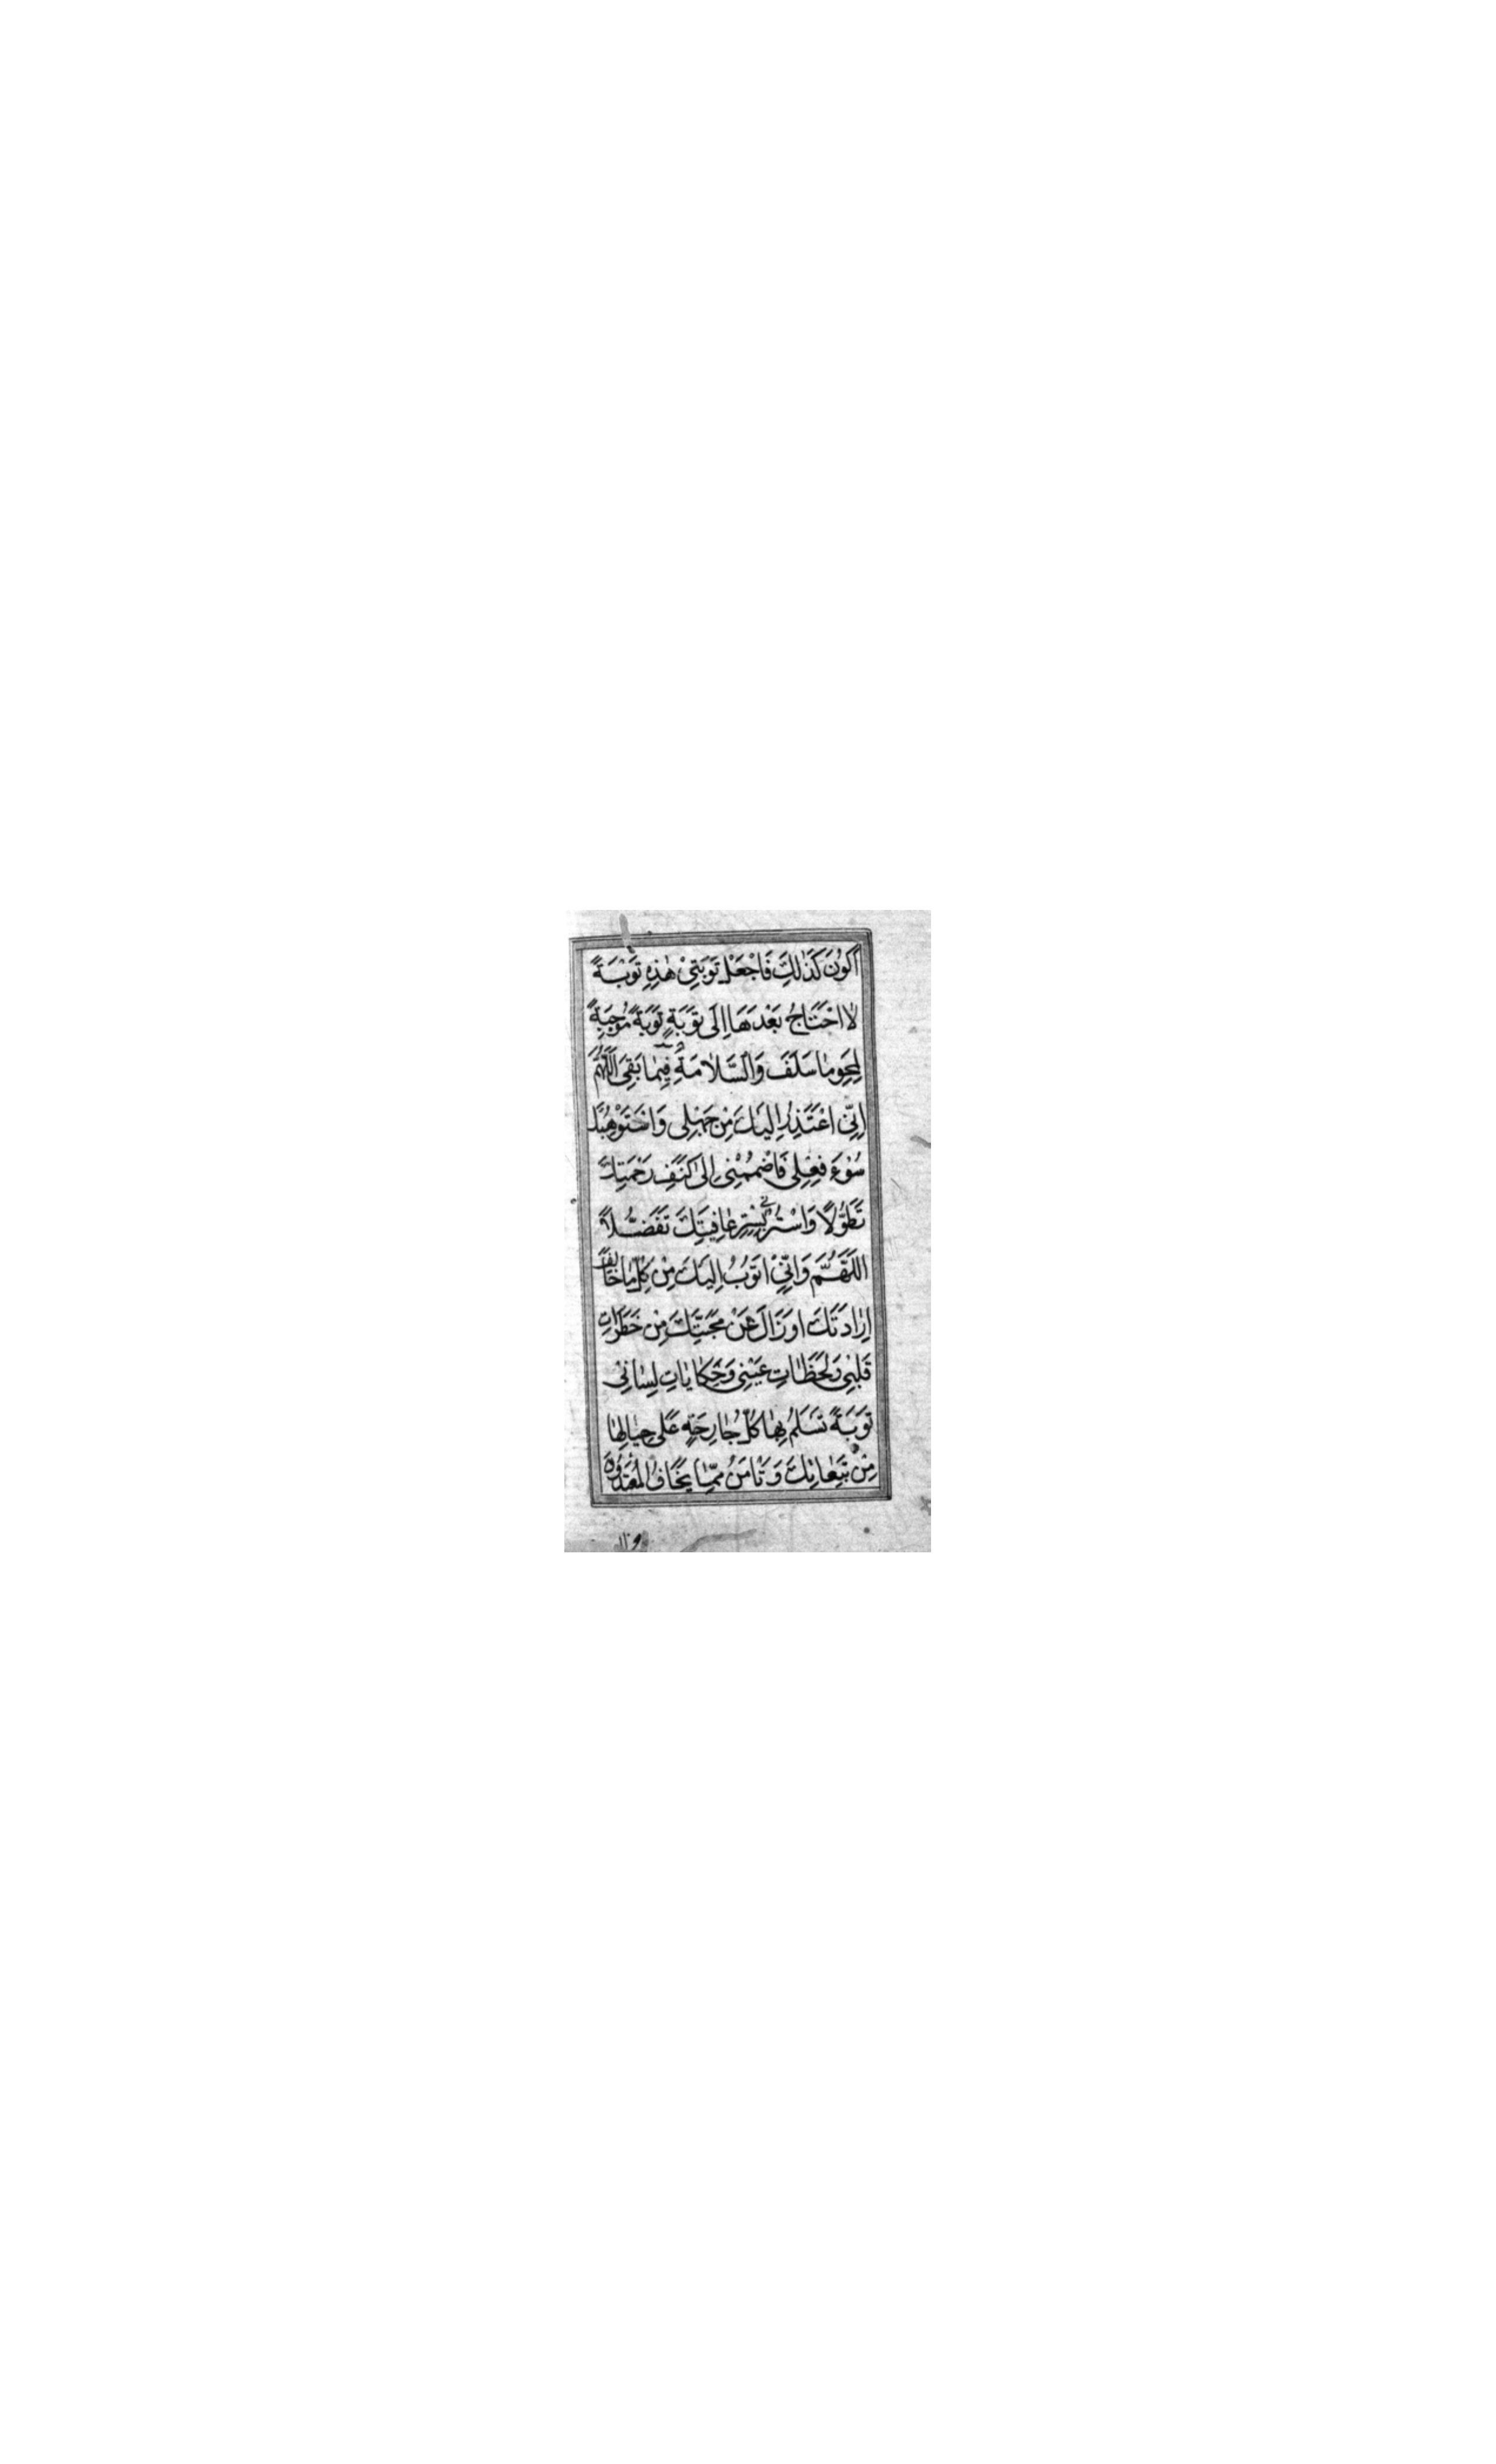 اَكُونَ كَذٰلِكَ فَاجْعَلْ تَوْبَتِيْ هٰذِهِ تَوْبَةً
لٰا اَحْتَاجُ بَعْدَهَا اِلَى تَوْبَةٍ تَوْبَةً مُوْجِبَةً
لِمَحْوِ مٰا سَلَفَ وَالسَّلٰامَةِ فِيمٰا بَقِيَ اَللّٰهُمَّ
اِنِّي اَعْتَذِرُ اِلَيْكَ مِنْ جَهْلِي وَاَسْتَوْهِبُكَ
سُوْءَ فِعْلِي فَاضْمُمْنِي اِلىٰ كَنَفِ رَحْمَتِكَ
تَطَوُّلًا وَاسْتُرْنِي بِسِتْرِ عٰافِيَتِكَ تَفَضُّلًا
اَللّٰهُمَّ وَاِنِّيْ اَتُوْبُ اِلَيْكَ مِنْ كُلِّ مٰا خٰالَفَ
اِرٰادَتَكَ اَوْ زَالَ عَنْ مَحَبَّتِكَ مِنْ خَطَرٰاتِ
قَلْبِي وَلَحَظٰاتِ عَيْنِي وَحِكٰايٰاتِ لِسٰانِي
تَوْبَةً تَسْلَمُ بِهٰا كُلُّ جٰارِحَةٍ عَلَى حِيٰالِهٰا
مِنْ تَبِعٰاتِكَ وَتَأْمَنُ مِمّٰا يَخَافُ الْمُعْتَدُوْنَ